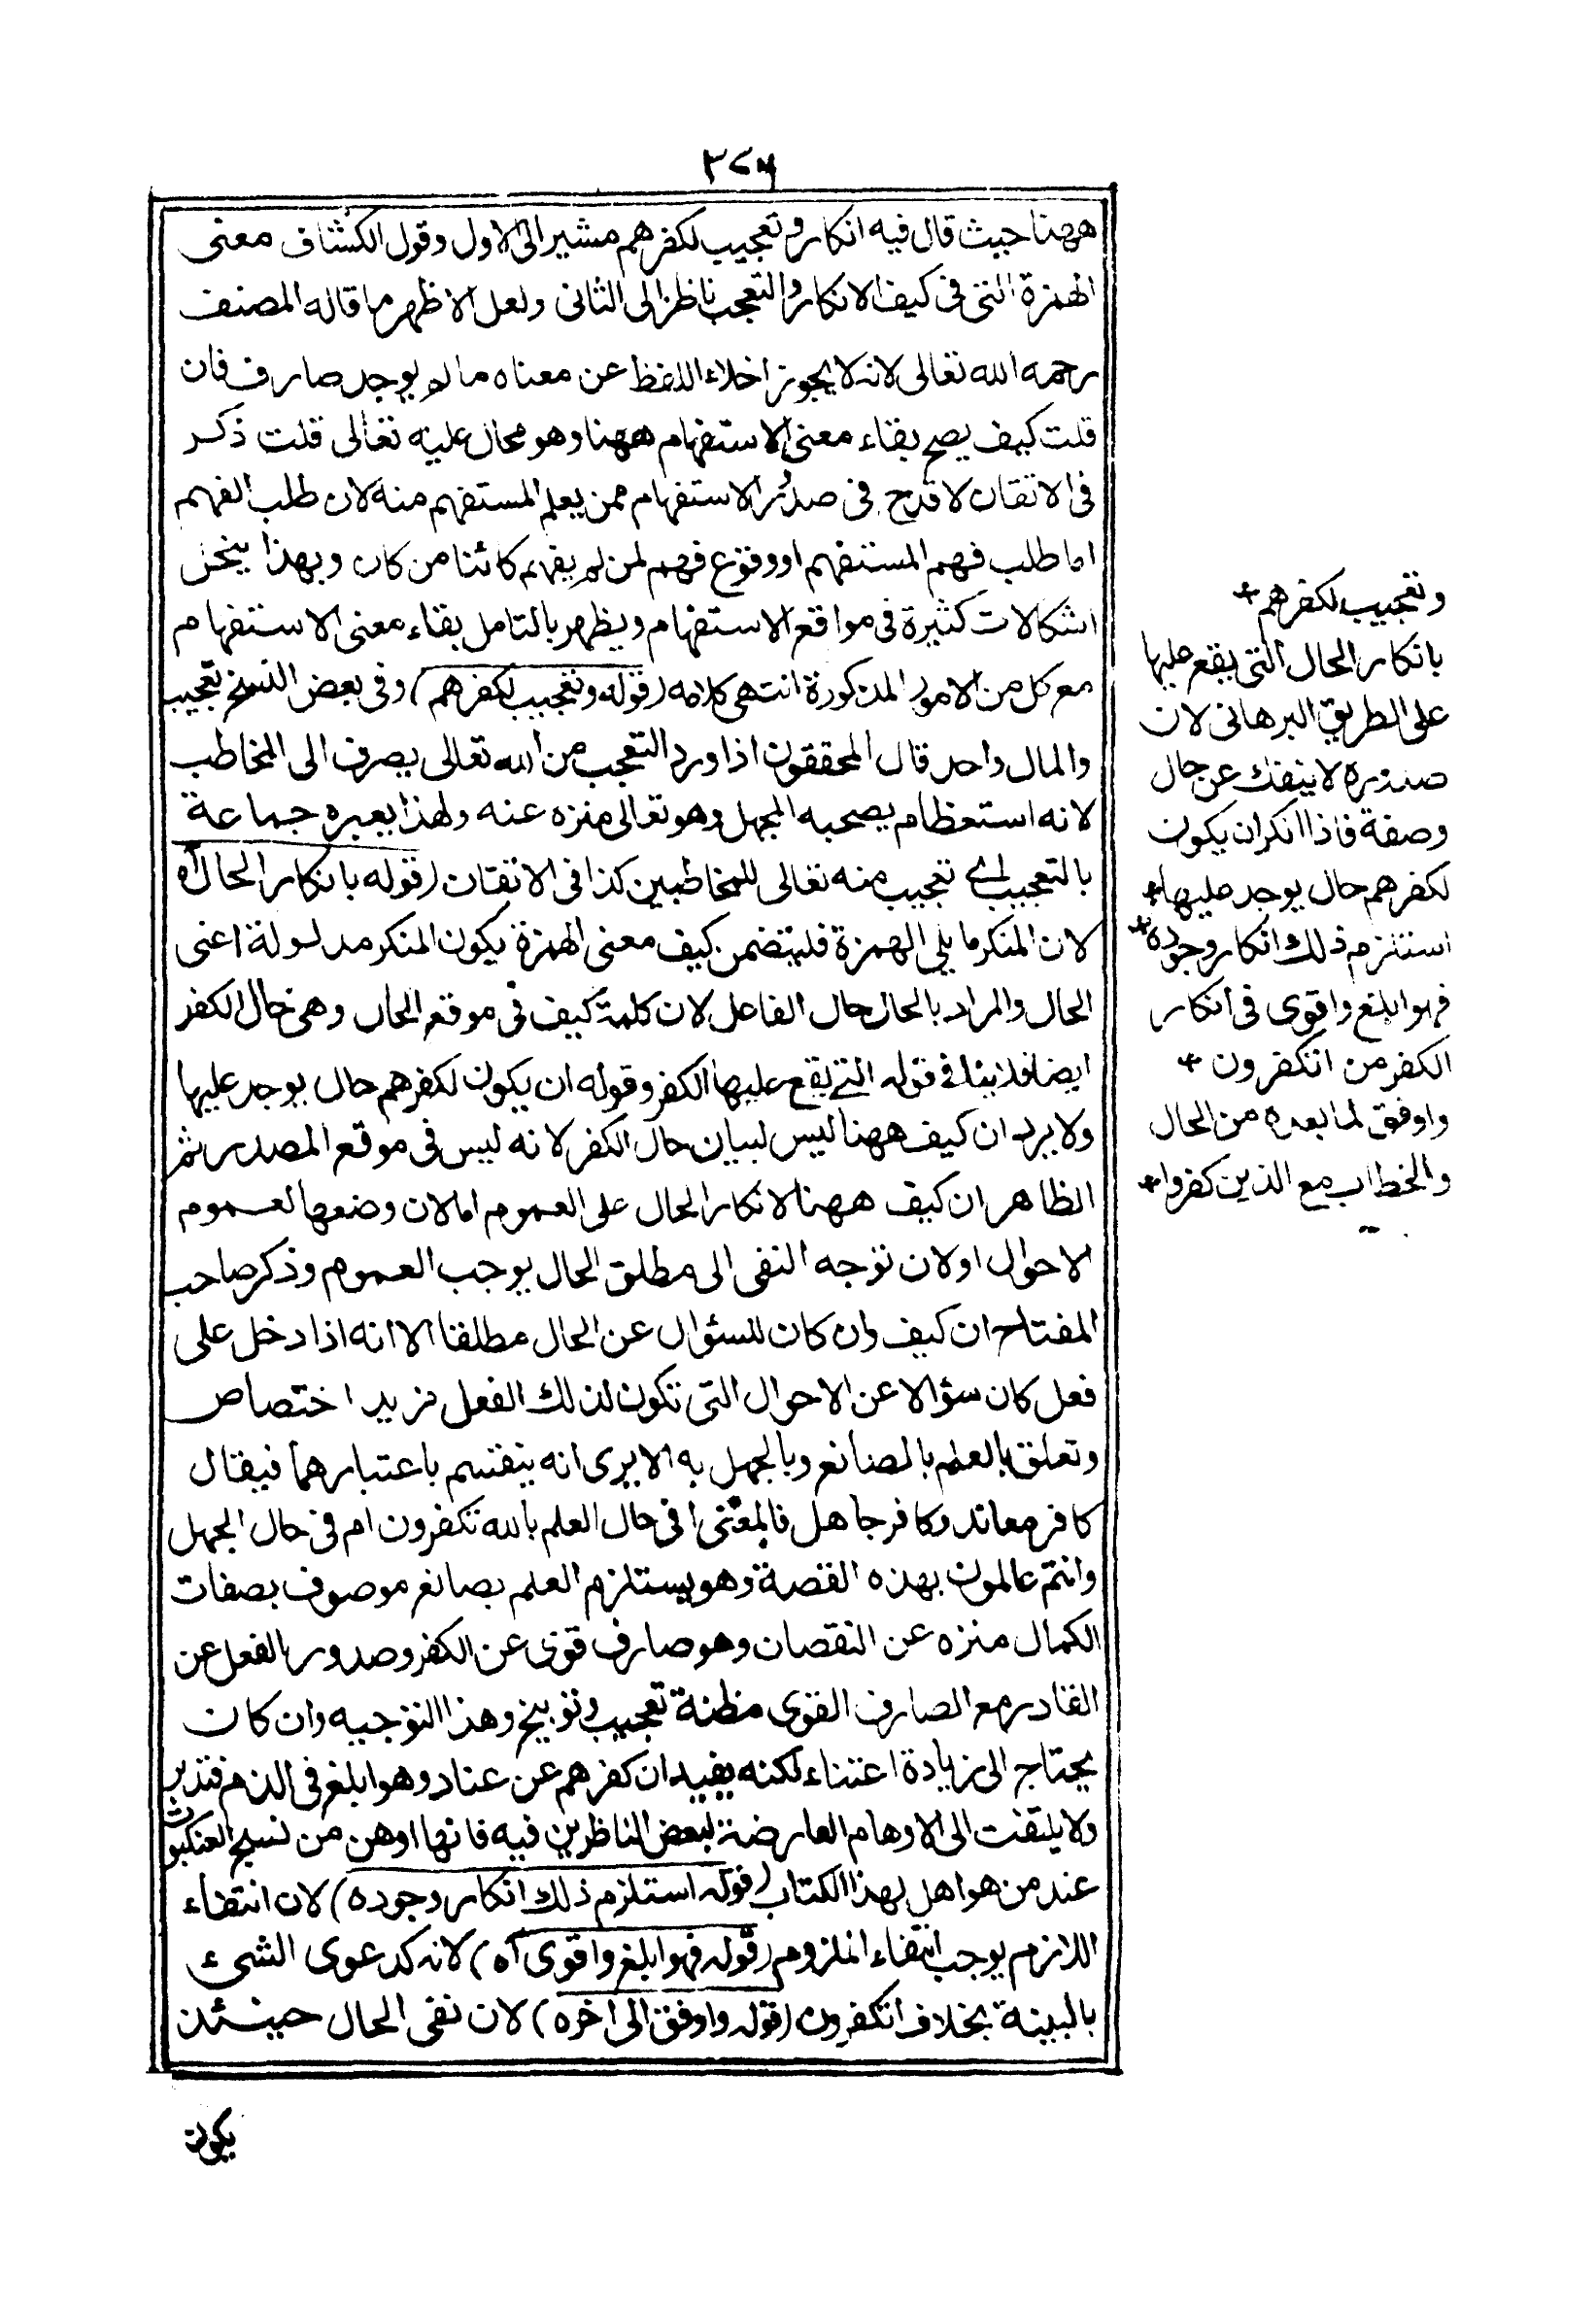 ٣٧٦
ههنا حيث قال فيه انكار وتعجيب لكفرهم مشير الى الاول وقول الكشاف معنى
الهمزة التى فى كيف الانكار والتعجب ناظر الى الثانى ولعل الاظهر ما قاله المصنف
رحمه الله تعالى لانه لا يجوز اخلاء اللفظ عن معناه ما لم يوجد صارف فان
قلت كيف يصح بقاء معنى الاستفهام ههنا وهو محال عليه تعالى قلت ذكر
فى الاتقان لا قدح فى صدور الاستفهام ممن يعلم المستفهم منه لان طلب الفهم
اما طلب فهم المستفهم او وقوع فهم لمن لم يفهم كائنا من كان وبهذا ينحل
اشكالات كثيرة فى مواقع الاستفهام ويظهر بالتامل بقاء معنى الاستفهام
مع كل من الامور المذكورة انتهى كلامه (قوله وتعجيب لكفرهم) وفى بعض النسخ تعجيب
والمال واحد قال المحققون اذا ورد التعجب من الله تعالى يصرف الى المخاطب
لانه استعظام يصحبه الجهل وهو تعالى منزه عنه ولهذا يعبره جماعة
بالتعجيب اى تعجيب منه تعالى للمخاطبين كذا فى الاتقان (قوله بانكار الحال آه
لان المنكر ما يلى الهمزة فليتضمن كيف معنى الهمزة يكون المنكر مدلولة اعنى
الحال والمراد بالحال حال الفاعل لان كلمة كيف فى موقع الحال وهى حال الكفر
ايضا فلا ينافى قوله التى يقع عليها الكفر وقوله ان يكون لكفرهم حال يوجد عليها
ولا يرد ان كيف ههنا ليس لبيان حال الكفر لانه ليس فى موقع المصدر ثم
الظاهر ان كيف ههنا لانكار الحال على العموم اما لان وضعها لعموم
الاحوال او لان توجه النفى الى مطلق الحال يوجب العموم وذكر صاحب
المفتاح ان كيف وان كان للسؤال عن الحال مطلقا الا انه اذا دخل على
فعل كان سؤالا عن الاحوال التى تكون لذلك الفعل مزيد اختصاص
وتعلق بالعلم بالصانع وبالجهل به الا يرى انه ينقسم باعتبارهما فيقال
كافر معاند وكافر جاهل فالمعنى افى حال العلم بالله تكفرون ام فى حال الجهل
وانتم عالمون بهذه القصة وهو يستلزم العلم بصانع موصوف بصفات
الكمال منزه عن النقصان وهو صارف قوى عن الكفر وصدور الفعل عن
القادر مع الصارف القوى مظنة تعجيب وتوبيخ وهذا التوجيه وان كان
يحتاج الى زيادة اعتناء لكنه يفيد ان كفرهم عن عناد وهو ابلغ فى الذم فتدبر
ولا يلتفت الى الاوهام العارضة لبعض الناظرين فيه فانها اوهن من نسج العنكبوت
عند من هو اهل لهذا الكتاب (قوله استلزم ذلك انكار وجوده) لان انتفاء
اللازم يوجب انتفاء الملزوم (قوله فهو ابلغ واقوى آه) لانه كدعوى الشئ
بالبينة بخلاف اتكفرون (قوله واوفق الى اخره) لان نفى الحال حينئذ
يكون
وتعجيب لكفرهم
بانكار الحال التى يقع عليها
على الطريق البرهانى لان
صدوره لا ينفك عن حال
وصفة فاذا انكر ان يكون
لكفرهم حال يوجد عليها
استلزم ذلك انكار وجوده
فهو ابلغ واقوى فى انكار
الكفر من اتكفرون
واوفق لما بعده من الحال
والخطاب مع الذين كفروا